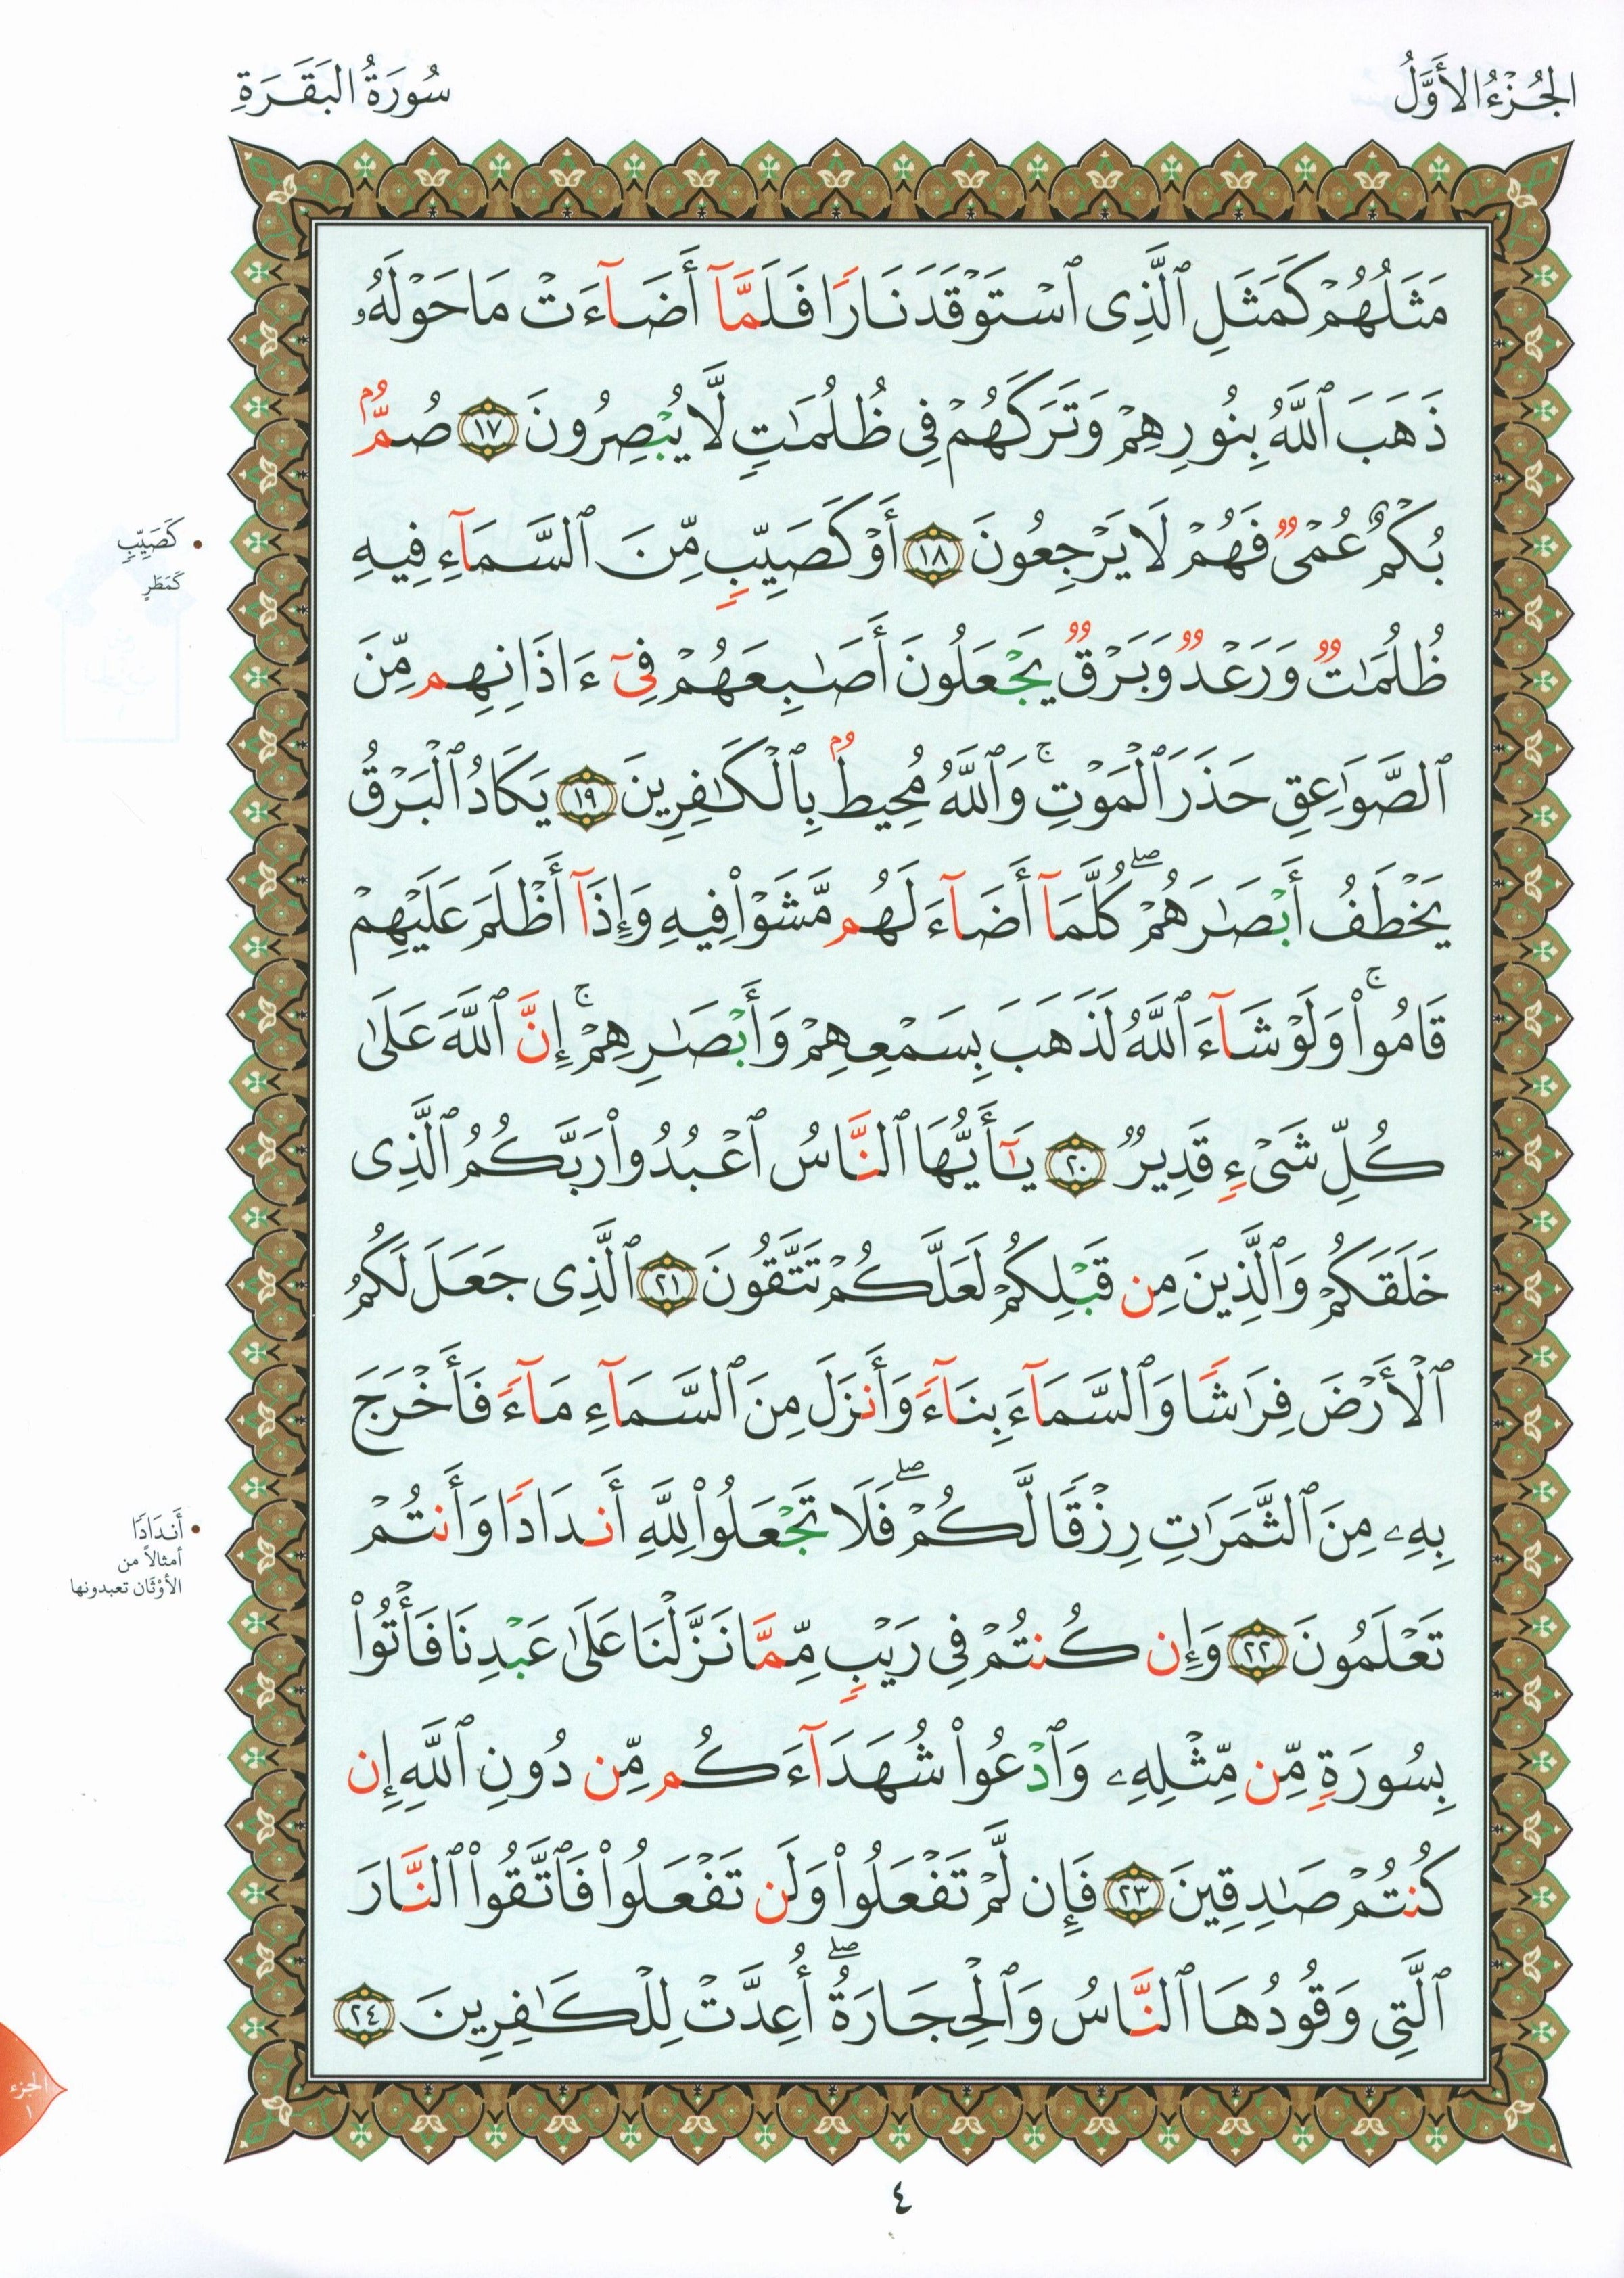 الجُزْءُ الأَوَّلُ
سُورَةُ البَقَرَةِ
مَثَلُهُمْ كَمَثَلِ ٱلَّذِى ٱسْتَوْقَدَ نَارًا فَلَمَّآ أَضَآءَتْ مَا حَوْلَهُۥ
ذَهَبَ ٱللَّهُ بِنُورِهِمْ وَتَرَكَهُمْ فِى ظُلُمَٰتٍ لَّا يُبْصِرُونَ ١٧ صُمٌّۢ
بُكْمٌ عُمْىٌ فَهُمْ لَا يَرْجِعُونَ ١٨ أَوْ كَصَيِّبٍ مِّنَ ٱلسَّمَآءِ فِيهِ
ظُلُمَٰتٌ وَرَعْدٌ وَبَرْقٌ يَجْعَلُونَ أَصَٰبِعَهُمْ فِىٓ ءَاذَانِهِم مِّنَ
ٱلصَّوَٰعِقِ حَذَرَ ٱلْمَوْتِ ۚ وَٱللَّهُ مُحِيطٌۢ بِٱلْكَٰفِرِينَ ١٩ يَكَادُ ٱلْبَرْقُ
يَخْطَفُ أَبْصَٰرَهُمْ ۖ كُلَّمَآ أَضَآءَ لَهُم مَّشَوْا۟ فِيهِ وَإِذَآ أَظْلَمَ عَلَيْهِمْ
قَامُوا۟ ۚ وَلَوْ شَآءَ ٱللَّهُ لَذَهَبَ بِسَمْعِهِمْ وَأَبْصَٰرِهِمْ ۚ إِنَّ ٱللَّهَ عَلَىٰ
كُلِّ شَىْءٍ قَدِيرٌ ٢٠ يَٰٓأَيُّهَا ٱلنَّاسُ ٱعْبُدُوا۟ رَبَّكُمُ ٱلَّذِى
خَلَقَكُمْ وَٱلَّذِينَ مِن قَبْلِكُمْ لَعَلَّكُمْ تَتَّقُونَ ٢١ ٱلَّذِى جَعَلَ لَكُمُ
ٱلْأَرْضَ فِرَٰشًا وَٱلسَّمَآءَ بِنَآءً وَأَنزَلَ مِنَ ٱلسَّمَآءِ مَآءً فَأَخْرَجَ
بِهِۦ مِنَ ٱلثَّمَرَٰتِ رِزْقًا لَّكُمْ ۖ فَلَا تَجْعَلُوا۟ لِلَّهِ أَندَادًا وَأَنتُمْ
تَعْلَمُونَ ٢٢ وَإِن كُنتُمْ فِى رَيْبٍ مِّمَّا نَزَّلْنَا عَلَىٰ عَبْدِنَا فَأْتُوا۟
بِسُورَةٍ مِّن مِّثْلِهِۦ وَٱدْعُوا۟ شُهَدَآءَكُم مِّن دُونِ ٱللَّهِ إِن
كُنتُمْ صَٰدِقِينَ ٢٣ فَإِن لَّمْ تَفْعَلُوا۟ وَلَن تَفْعَلُوا۟ فَٱتَّقُوا۟ ٱلنَّارَ
ٱلَّتِى وَقُودُهَا ٱلنَّاسُ وَٱلْحِجَارَةُ ۖ أُعِدَّتْ لِلْكَٰفِرِينَ ٢٤
• كَصَيِّبٍ
كَمَطَرٍ
• أَندَادًا
أمثالاً من
الأوْثَان تعبدونها
الجزء
١
٤